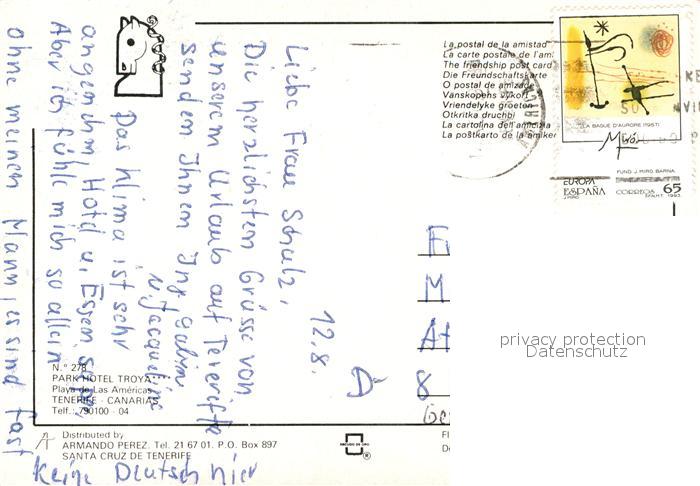 La postal de la amistad
La carte postale de l'ami
The friendship post card
Die Freundschaftskarte
O postal de amizade
Vanskopens vykort
Vriendelyke groeten
Otkritka druchbi
La cartolina dell'amicizia
La postkarto de la amikec
LA BAGUE D'AURORE (1957)
Miró
FUND. J. MIRO. BARNA.
EUROPA
ESPAÑA
CORREOS 65
J. MIRO
F.N.M.T. 1993
12.8.
Liebe Frau Schulz,
Die herzlichsten Grüsse von
unserem Urlaub auf Teneriffa
senden Ihnen
u. Jacqueline
Das Klima ist sehr
angenehm Hotel u. Essen
Aber ich fühle mich so allein
ohne meinen Mann, es sind fast
keine Deutsch hier
Fr
M
At
D- 8
Ge
N.° 278
PARK HOTEL TROYA
Playa de Las Américas
TENERIFE - CANARIAS
Telf.: 790100 - 04
Distributed by
ARMANDO PEREZ. Tel. 21 67 01. P.O. Box 897
SANTA CRUZ DE TENERIFE
ESCUDO DE ORO
FI
De
privacy protection
Datenschutz